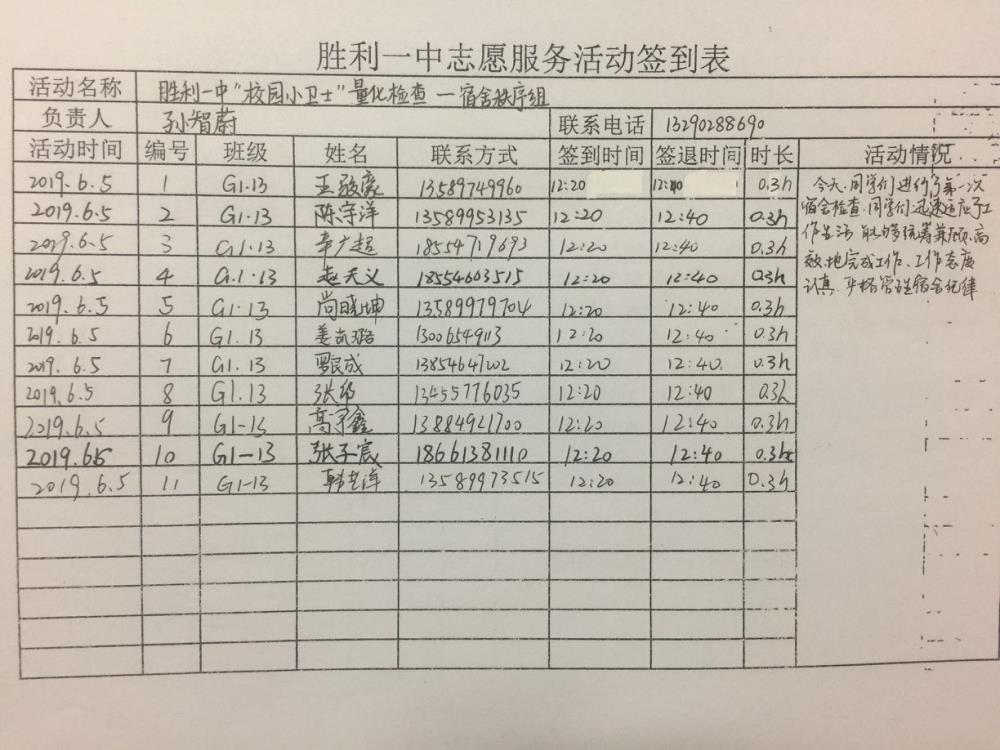 胜利一中志愿服务活动签到表
活动名称 胜利一中"校园小卫士"量化检查—宿舍秩序组
负责人 孙智蔚 联系电话 13290288690
活动时间 编号 班级 姓名 联系方式 签到时间 签退时间 时长 活动情况
2019.6.5 1 G1.13 王敬豪 13589749960 12:20 12:40 0.3h
2019.6.5 2 G1.13 陈宇洋 13589953135 12:20 12:40 0.3h
2019.6.5 3 G1.13 辛广超 18554719693 12:20 12:40 0.3h
2019.6.5 4 G1.13 赵天义 18554603515 12:20 12:40 0.3h
2019.6.5 5 G1.13 尚晓坤 13589979704 12:20 12:40 0.3h
2019.6.5 6 G1.13 姜 璐 13006549113 12:20 12:40 0.3h
2019.6.5 7 G1.13 成 13854647202 12:20 12:40. 0.3h
2019.6.5 8 G1.13 张 13455776035 12:20 12:40 0.3h
2019.6.5 9 G1-13 高宇鑫 13884921700 12:20 12:40 0.3h
2019.6.5 10 G1-13 张子宸 18661381110 12:20 12:40 0.3h
2019.6.5 11 G1-13 韩 洋 13589973515 12:20 12:40 0.3h
今天,同学们进行了第一次
宿舍检查,同学们迅速适应了工
作生活,能够统筹兼顾,高
效地完成工作、工作态度
认真,严格管理宿舍纪律